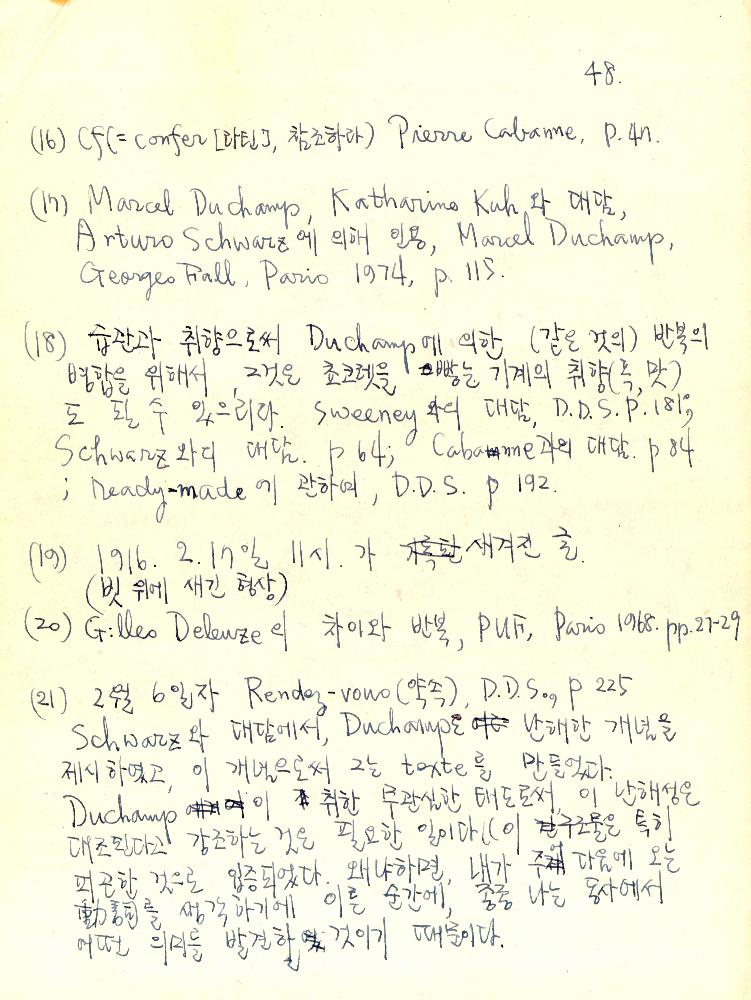 48.
(16) Cf(= confer [라틴], 참조하라) Pierre Cabanne, p. 47.
(17) Marcel Duchamp, Katharine Kuh 와 대담,
Arturo Schwarz에 의해 인용, Marcel Duchamp,
Georges Fall, Paris 1974, p. 115.
(18) 습관과 취향으로써 Duchamp에 의한 (같은 것의) 반복의
병합을 위해서, 그것은 쵸코렛을 빻는 기계의 취향(혹, 맛)
도 될 수 있으리라. Sweeney와의 대담, D.D.S. P. 181;
Schwarz와의 대담. p 64; Cabanne과의 대담. p 84
; ready-made에 관하여, D.D.S. p 192.
(19) 1916. 2. 17일 11시. 가 새겨진 글.
(빗 위에 새긴 형상)
(20) Gilles Deleuze의 차이와 반복, PUF, Paris 1968. pp. 27-29
(21) 2월 6일자 Rendez-vous(약속), D.D.S., p 225
Schwarz와 대담에서, Duchamp은 난해한 개념을
제시하였고, 이 개념으로써 그는 texte를 만들었다.
Duchamp이 취한 무관심한 태도로써, 이 난해성은
대조된다고 강조하는 것은 필요한 일이다((이 구조물은 특히
피곤한 것으로 입증되었다. 왜냐하면, 내가 주어 다음에 오는
動詞를 생각하기에 이른 순간에, 종종 나는 동사에서
어떤 의미를 발견할 것이기 때문이다.